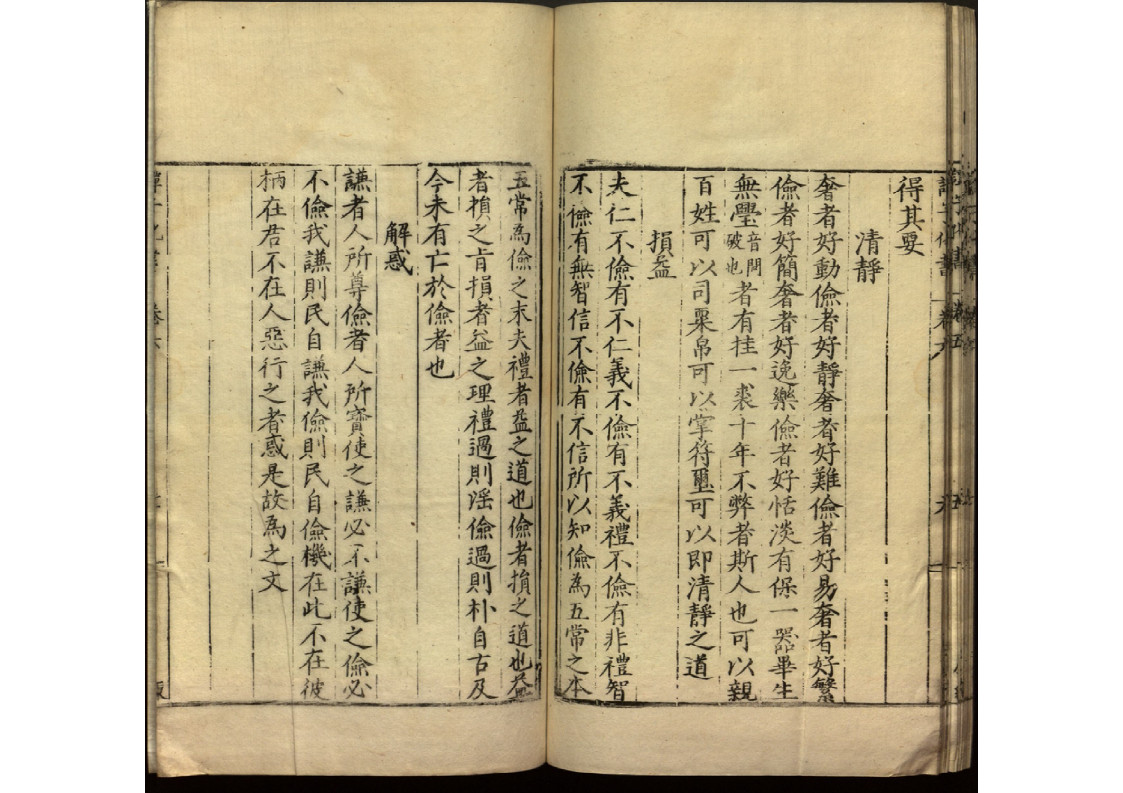 得其要
清靜
奢者好動儉者好靜奢者好難儉者好易奢者好繁
儉者好簡奢者好逸樂儉者好恬淡有保一器畢生
無璺音問破也者有挂一裘十年不弊者斯人也可以親
百姓可以司粟帛可以掌符璽可以即清靜之道
損益
夫仁不儉有不仁義不儉有不義禮不儉有非禮智
不儉有無智信不儉有不信所以知儉為五常之本
五常為儉之末夫禮者益之道也儉者損之道也益
者損之旨損者益之理禮過則淫儉過則朴自古及
今未有亡於儉者也
解惑
謙者人所尊儉者人所寶使之謙必不謙使之儉必
不儉我謙則民自謙我儉則民自儉機在此不在彼
柄在君不在人惡行之者惑是故為之文